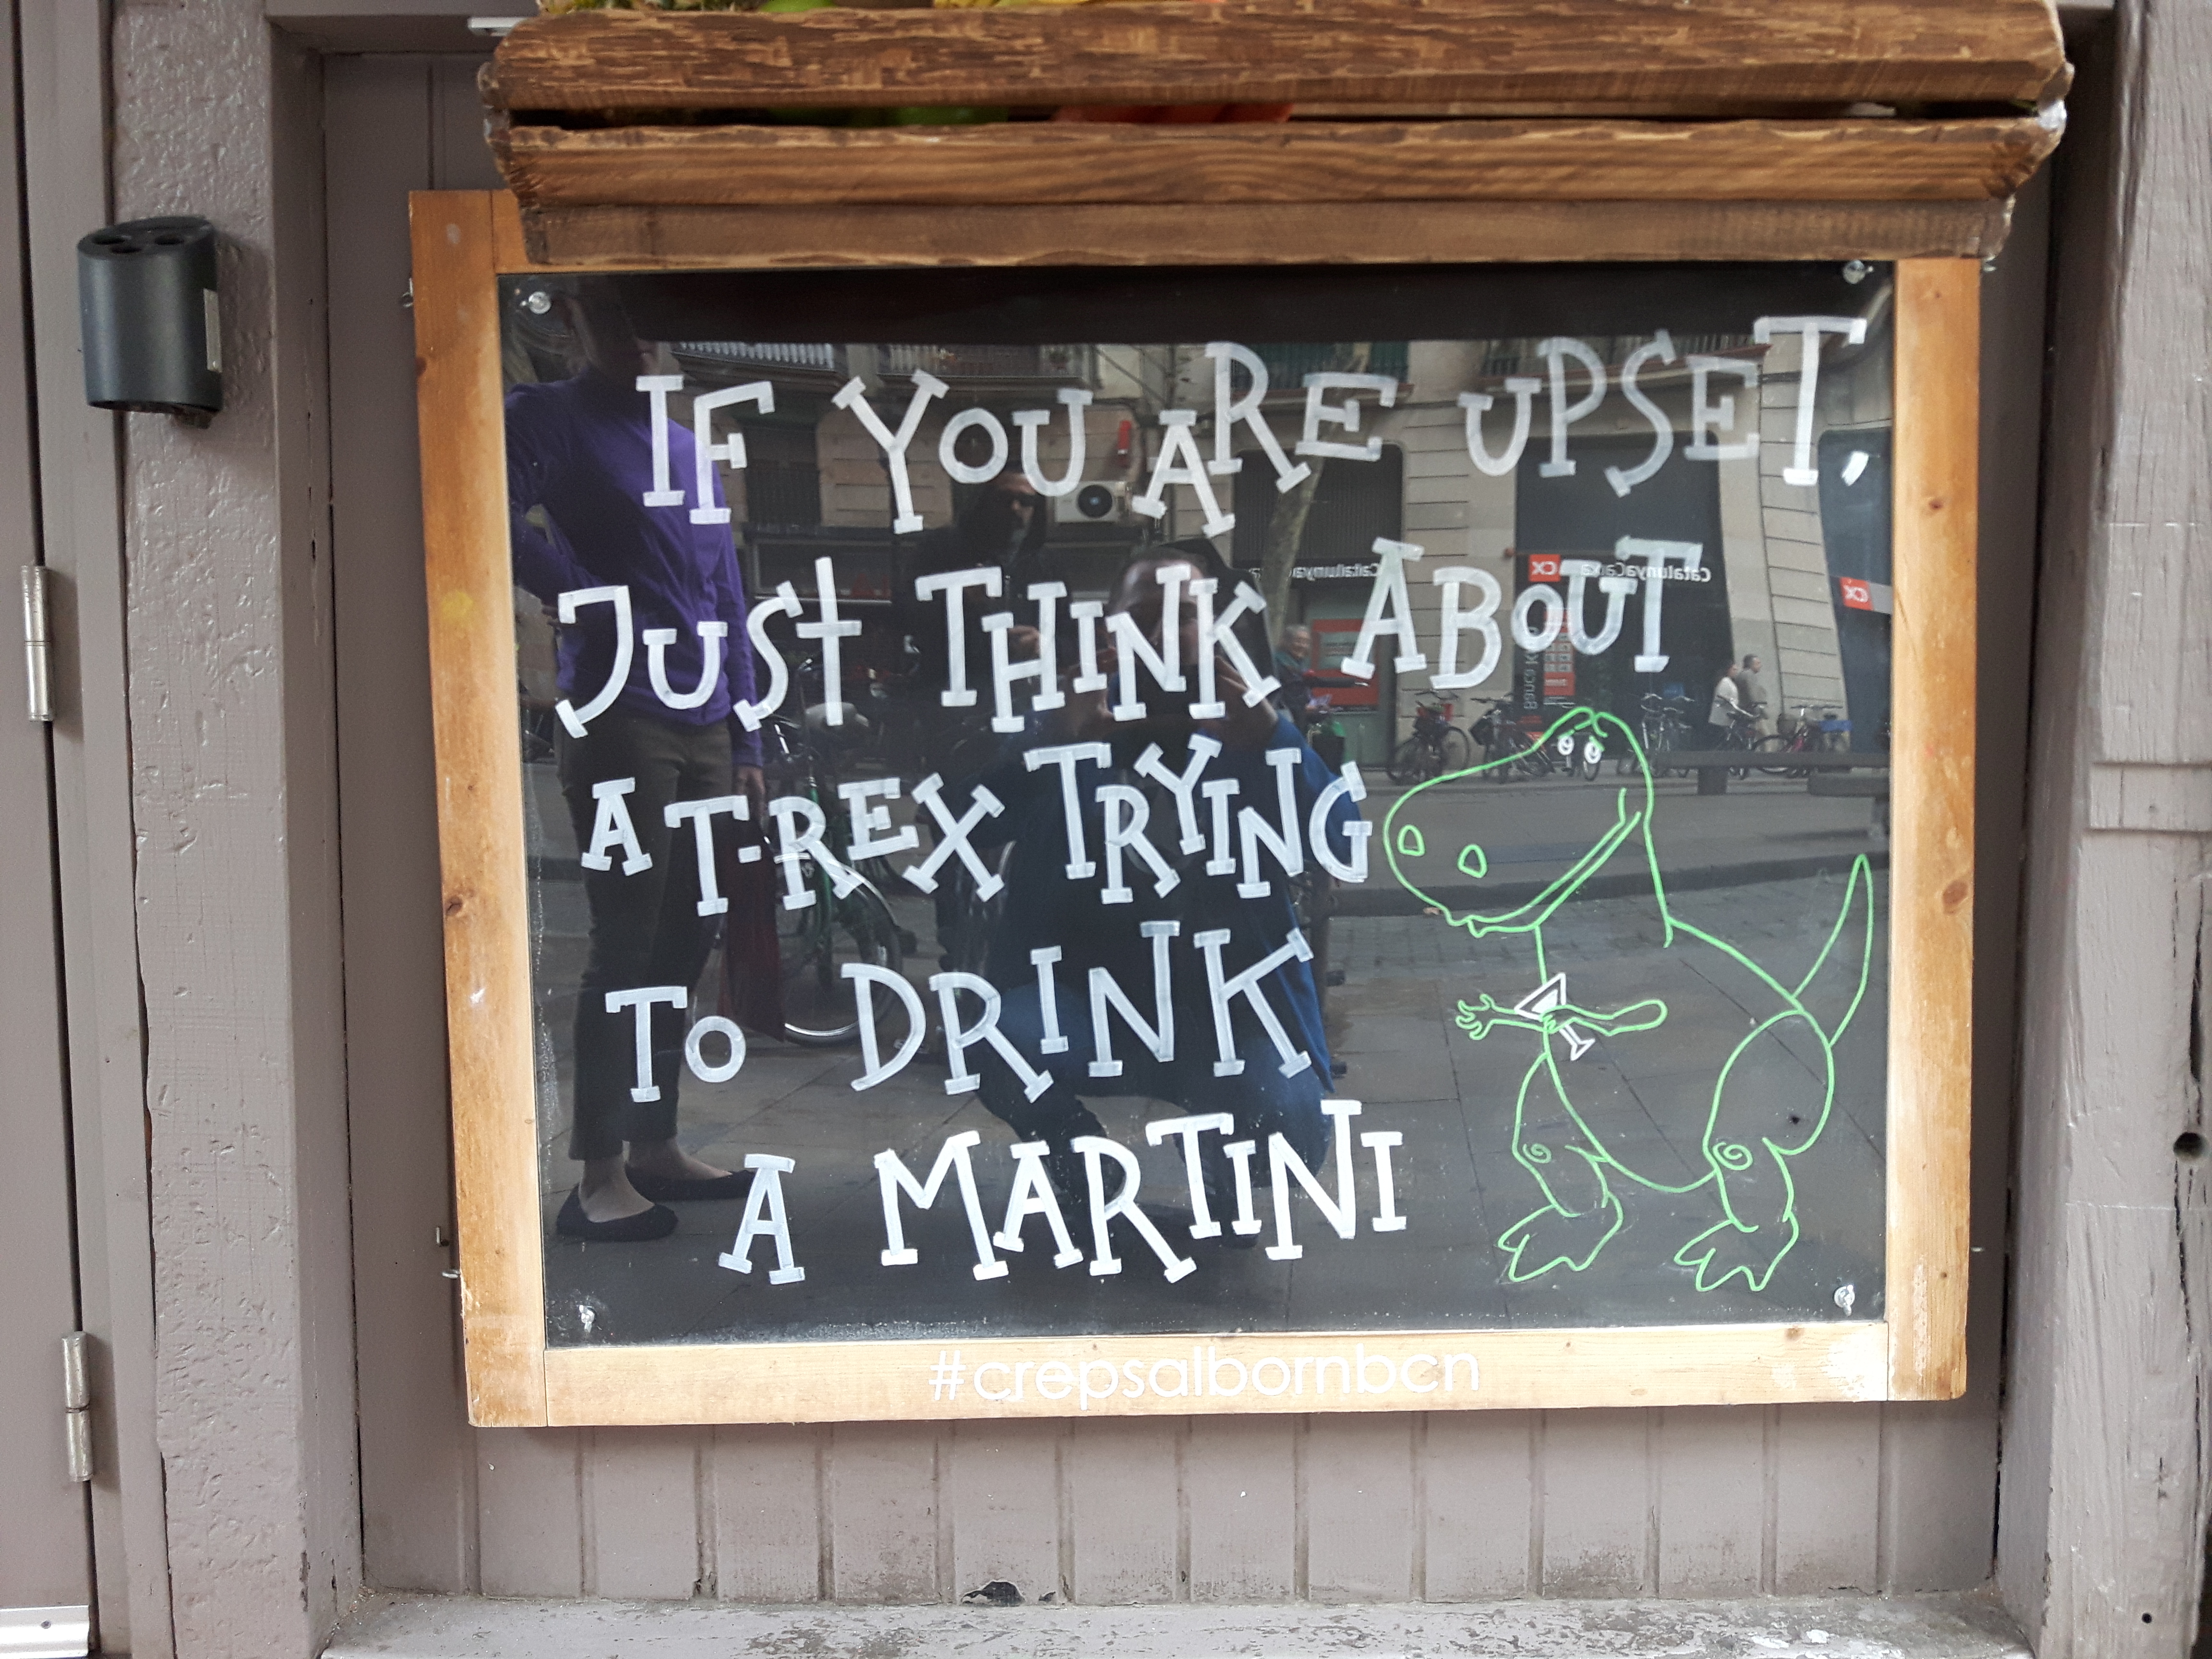 IF YOU ARE UPSET,
JUST THINK ABOUT
A T-REX TRYING
TO DRINK
A MARTINI
#crepsalbornbcn
CatalunyaCaixa
CX
CX